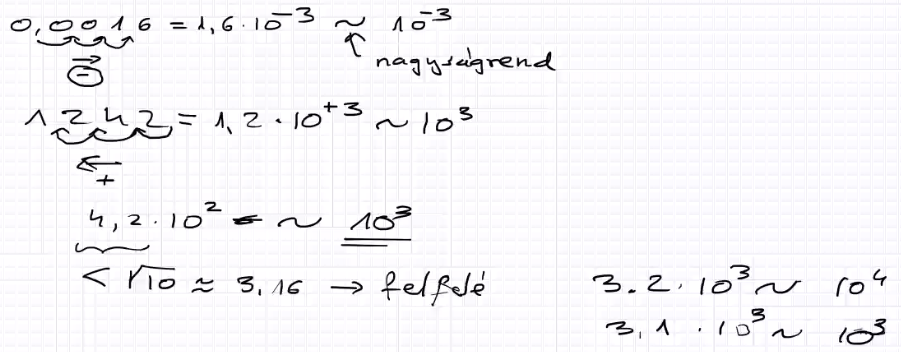 0,0016 = 1,6 · 10⁻³ ~ 10⁻³
nagyságrend
⊖
1242 = 1,2 · 10⁺³ ~ 10³
+
4,2 · 10² ~ 10³
< √10 ≈ 3,16 → felfelé
3.2 · 10³ ~ 10⁴
3,1 · 10³ ~ 10³